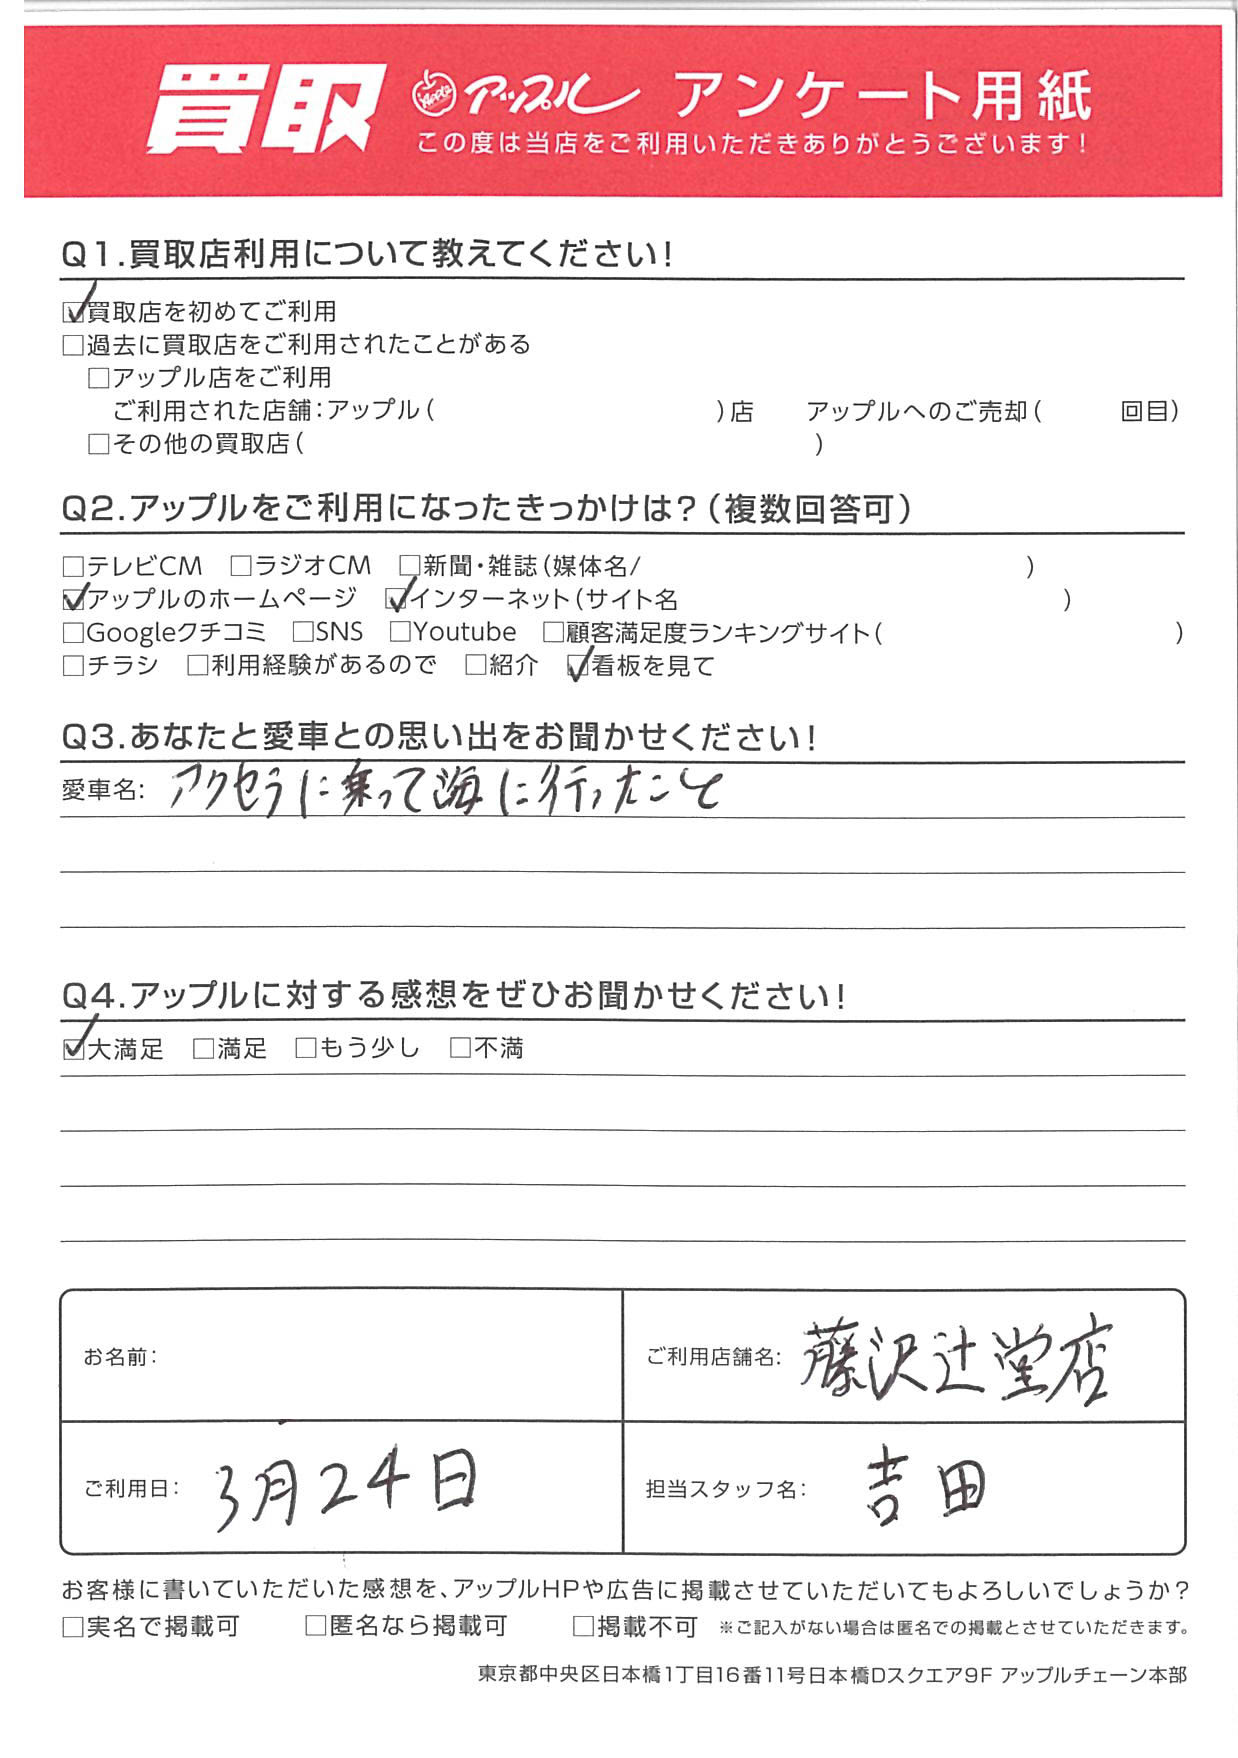 買取 Apple アップル アンケート用紙
この度は当店をご利用いただきありがとうございます!
Q1.買取店利用について教えてください!
☑買取店を初めてご利用
□過去に買取店をご利用されたことがある
□アップル店をご利用
ご利用された店舗:アップル( )店 アップルへのご売却( 回目)
□その他の買取店( )
Q2.アップルをご利用になったきっかけは?(複数回答可)
□テレビCM □ラジオCM □新聞・雑誌(媒体名/ )
☑アップルのホームページ ☑インターネット(サイト名 )
□Googleクチコミ □SNS □Youtube □顧客満足度ランキングサイト( )
□チラシ □利用経験があるので □紹介 ☑看板を見て
Q3.あなたと愛車との思い出をお聞かせください!
愛車名: アクセラに乗って海に行ったこと
Q4.アップルに対する感想をぜひお聞かせください!
☑大満足 □満足 □もう少し □不満
お名前:
ご利用店舗名: 藤沢辻堂店
ご利用日: 3月24日
担当スタッフ名: 吉田
お客様に書いていただいた感想を、アップルHPや広告に掲載させていただいてもよろしいでしょうか?
□実名で掲載可 □匿名なら掲載可 □掲載不可 ※ご記入がない場合は匿名での掲載とさせていただきます。
東京都中央区日本橋1丁目16番11号日本橋Dスクエア9F アップルチェーン本部